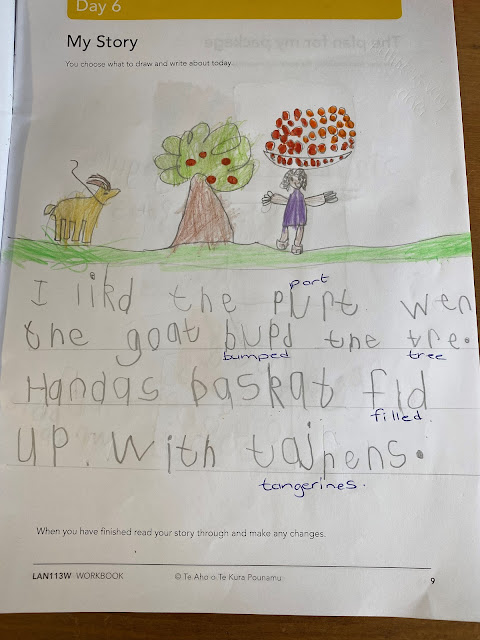 Day 6
My Story
You choose what to draw and write about today.
part
I likd the purt. wen
the goat bupd the tre.
bumped tree
Handas baskat fld
filled.
up. with tajnens.
tangerines.
When you have finished read your story through and make any changes.
LAN113W WORKBOOK © Te Aho o Te Kura Pounamu 9